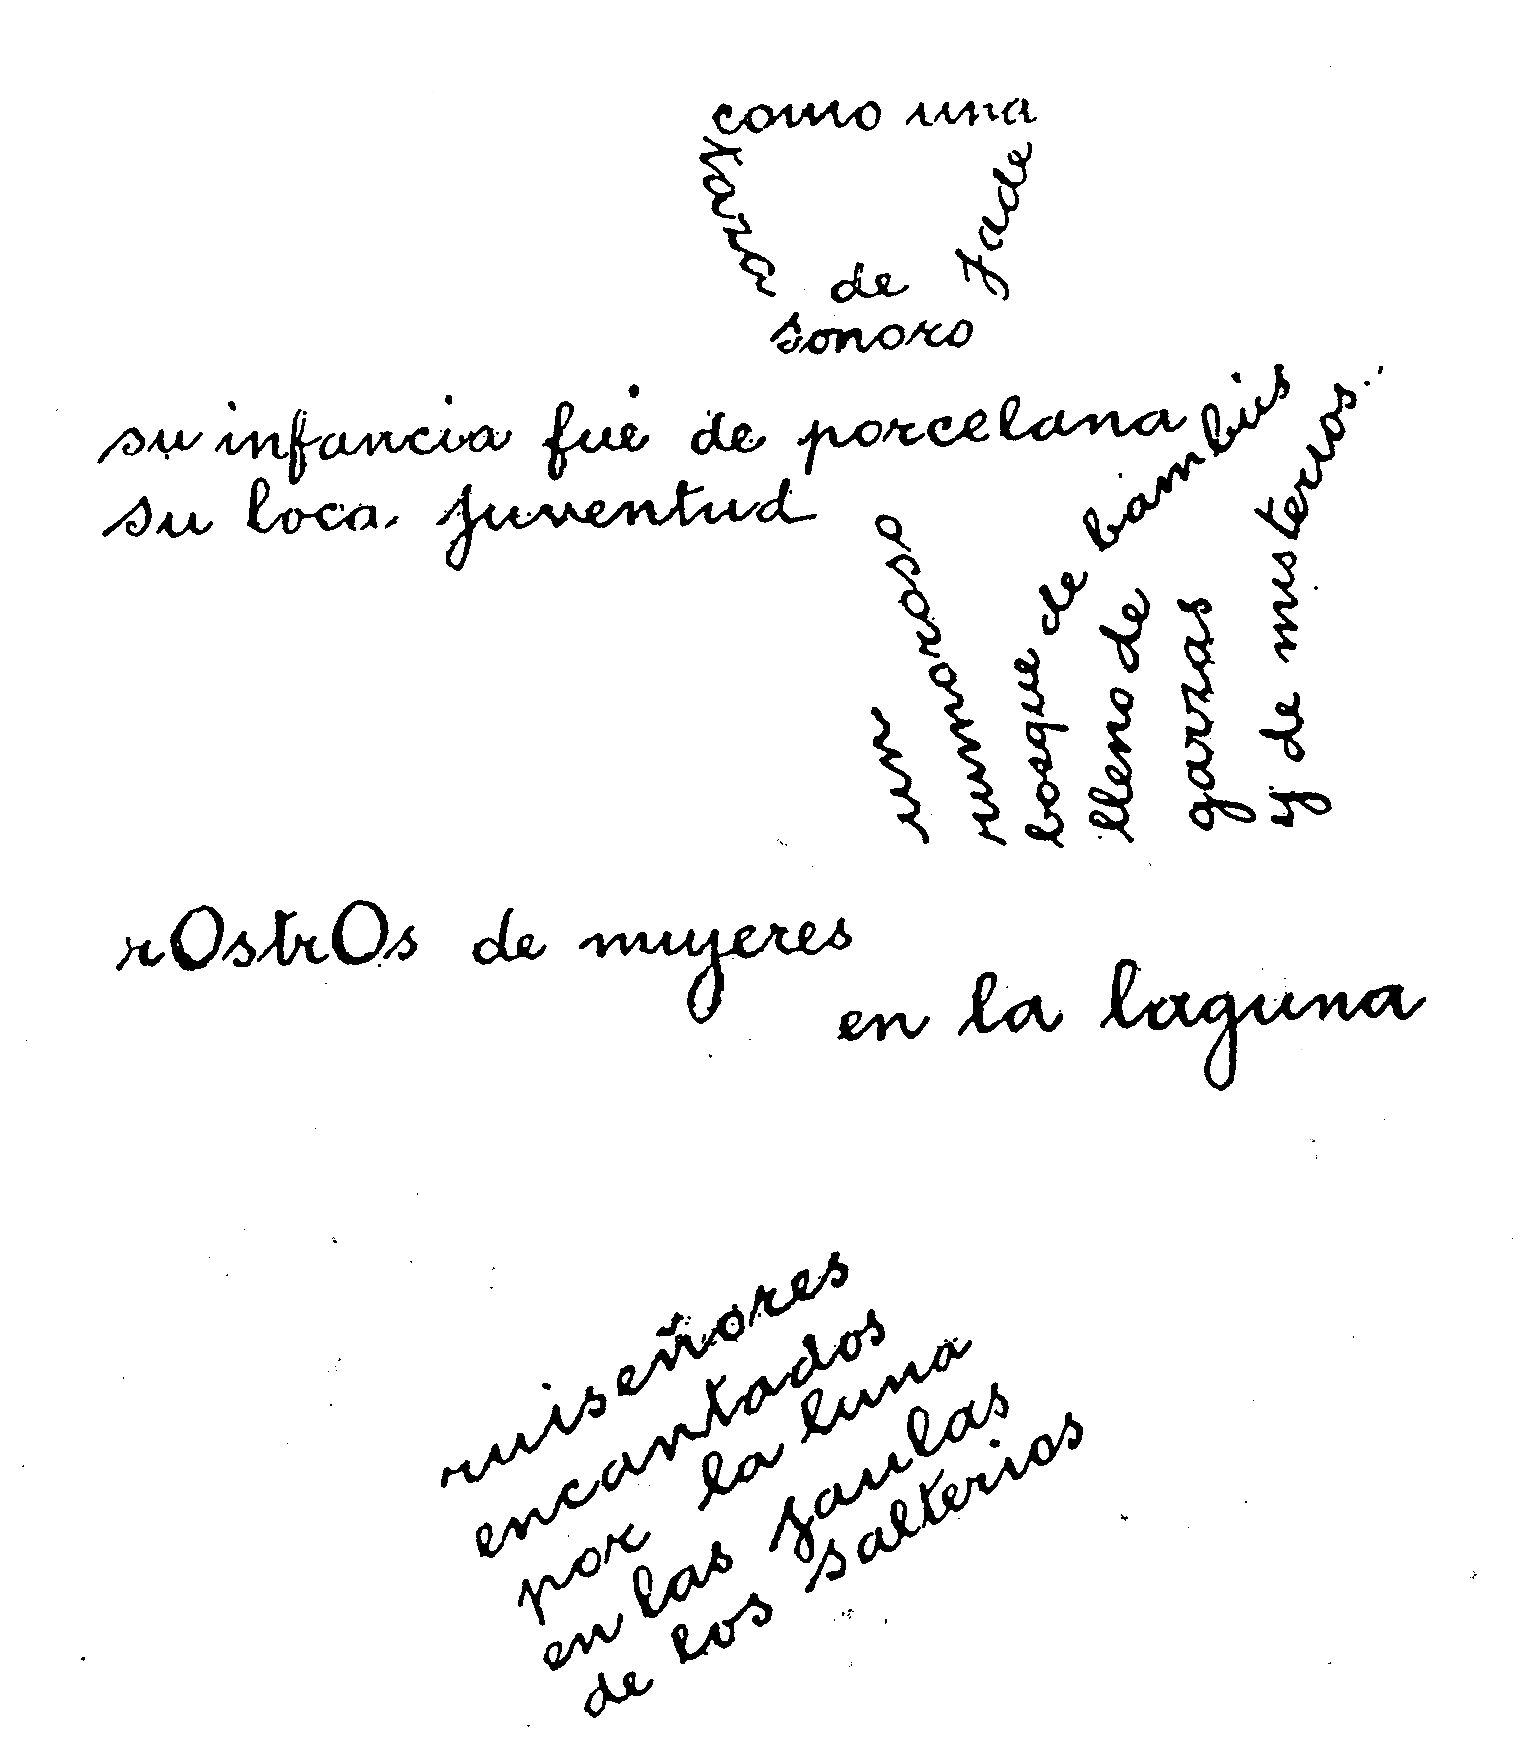 como una
taza
de
sonoro
jade
su infancia fué de porcelana
su loca juventud
un
rumoroso
bosque de bambús
lleno de
garzas
y de misterios...
rOstrOs de mujeres
en la laguna
ruiseñores
encantados
por la luna
en las jaulas
de los salterios